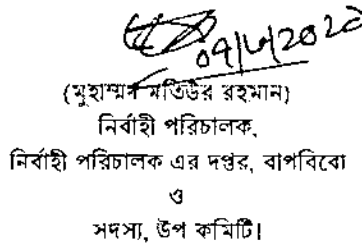 (মুহাম্মদ মতিউর রহমান)
নির্বাহী পরিচালক,
নির্বাহী পরিচালক এর দপ্তর, বাপবিবো
ও
সদস্য, উপ কমিটি।